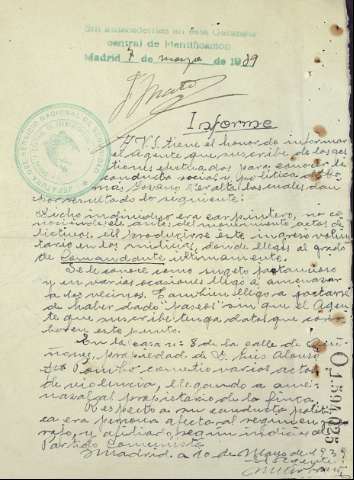 Sin antecedentes en este Gabinete
central de Identificación
Madrid 7 de mayo de 1939
Informe
A V.S. tiene el honor de informar
el Agente que suscribe de las ges
tiones efectuadas para conocer la
conducta social y politica de
mas Lozano Peralta las cuales dan
por resultado lo siguiente:
Dicho individuo era carpintero, no co
antes del movimiento actos de
lictivos. Al producirse este ingresó volun
tario en las milicias, donde llegó al grado
de Comandante ultimamente.
Se le conoce como sugeto
y en varias ocasiones llegó a amenazar
a los vecinos. Tambien llegó a jactarse
de haber dado "paseos" sin que el Agen
te que suscribe tenga datos que com
prueben este punto.
En la casa nº 8 de la calle de
propiedad de D. Luis Alonso
cometió varios actos
de violencia, llegando a ame
nazar al propietario de la finca.
Respecto a su conducta politi
ca era persona afecta al regimen
rojo, y afiliado, según indicios al
Partido Comunista.
Madrid, a 10 de Mayo de 1939
El Agente
O 1.594.025